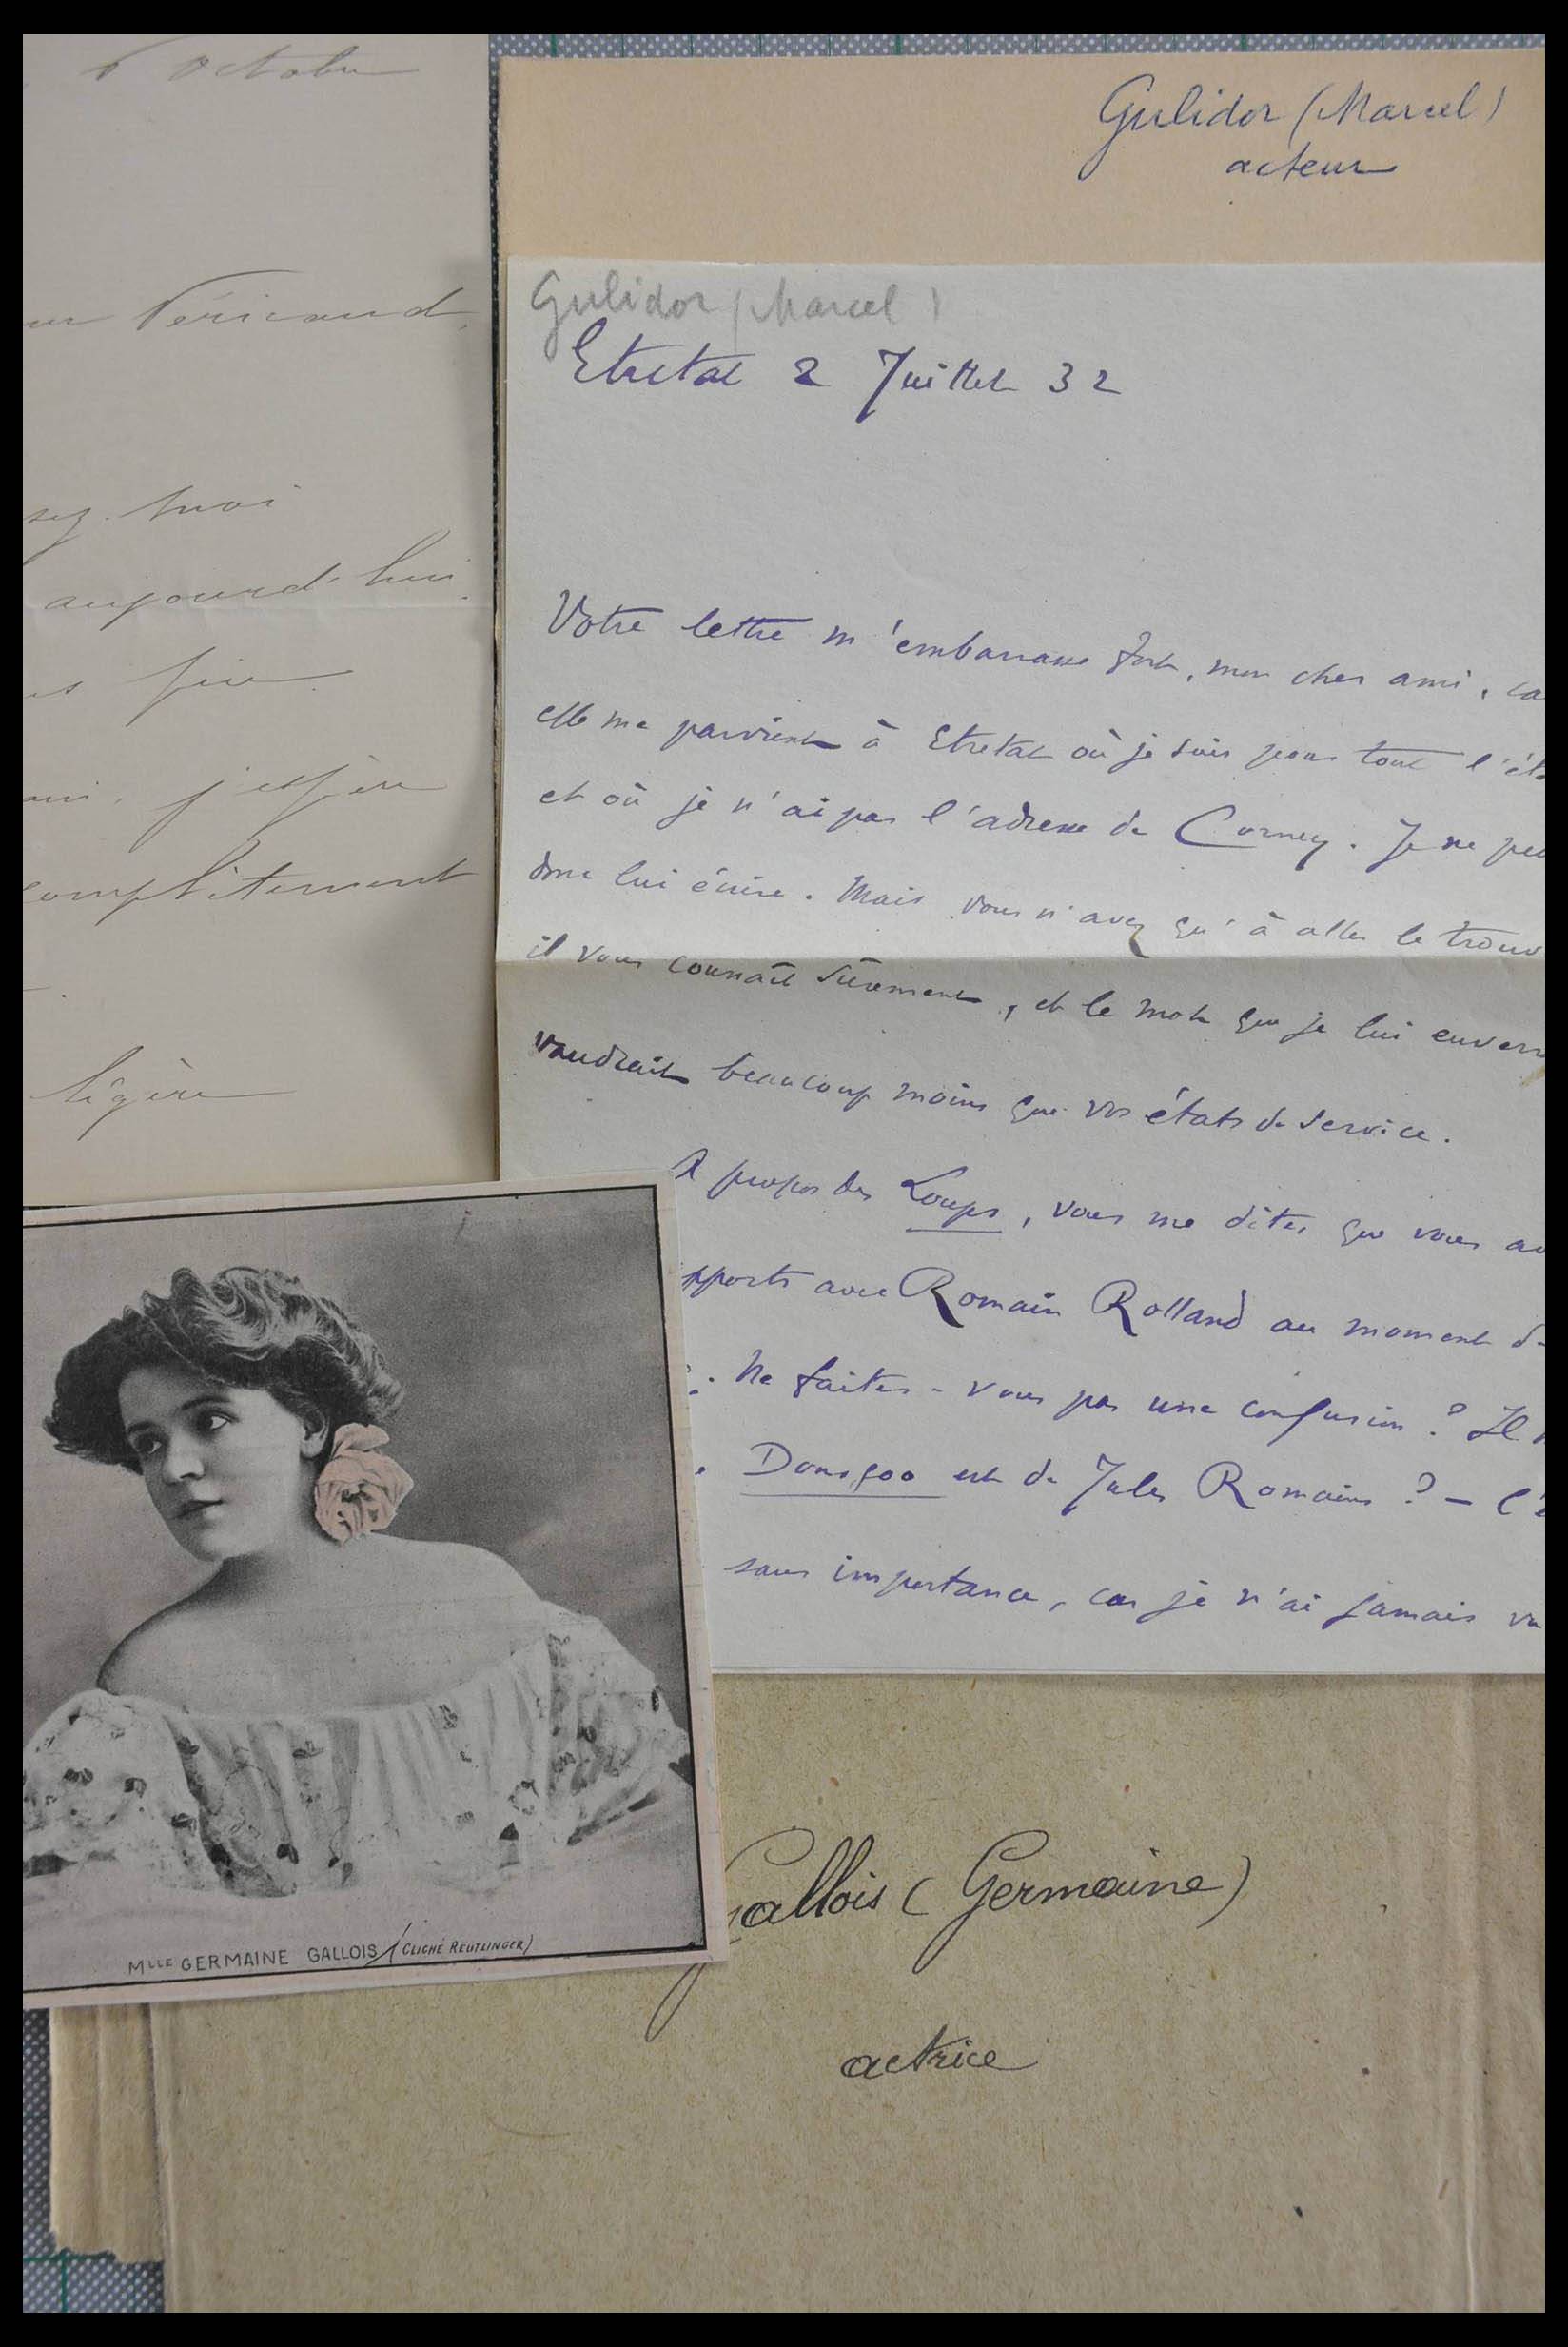 6 octobre
Péricaud,
moi
aujourd'hui.
j'espère
complètement
légère
Gulidor (Marcel)
acteur
Gulidor (Marcel)
Etretat 2 Juillet 32
Votre lettre m'embarrasse fort, mon cher ami, ca
elle me parvient à Etretat où je suis pour tout l'ét
et où je n'ai pas l'adresse de. Je ne peu
donc lui écrire. Mais vous n'avez qu'à aller le trouv
il vous connaît sûrement, et le mot que je lui enverr
vaudrait beaucoup moins que vos états de service.
A propos des Loups, vous me dites que vous av
pports avec Romain Rolland au moment d
. Ne faites-vous pas une confusion ? Il
Donogoo est de Jules Romains ? - C'e
sans importance, car je n'ai jamais vu
MLLE GERMAINE GALLOIS (CLICHÉ REUTLINGER)
Gallois (Germaine)
actrice